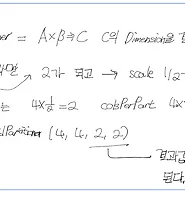 er = A×B ⇒ C C의 Dimension을
2가 되고 → scale 1/2
는 4×1/2=2 colsPerPart 4×
lPartitioner (4, 4, 2, 2)
된다.